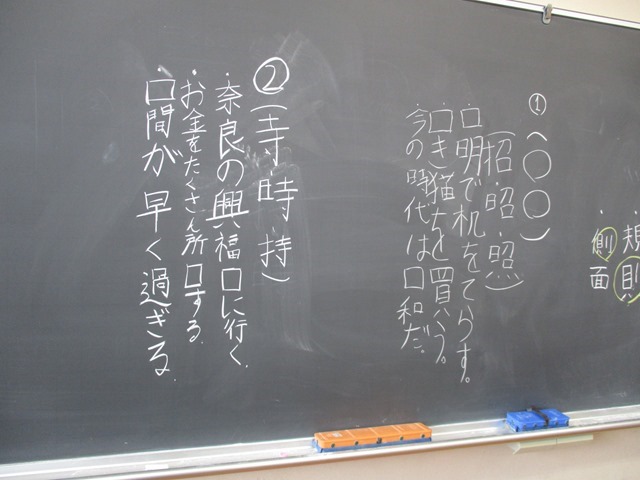 規則
・側面
①(〇〇)
(招・昭・照)
・口明で机をてらす。
・口き猫ちを買おう。
・今の時代は口和だ。
②(寺・時・持)
・奈良の興福口に行く。
・お金をたくさん所口する。
口間が早く過ぎる。